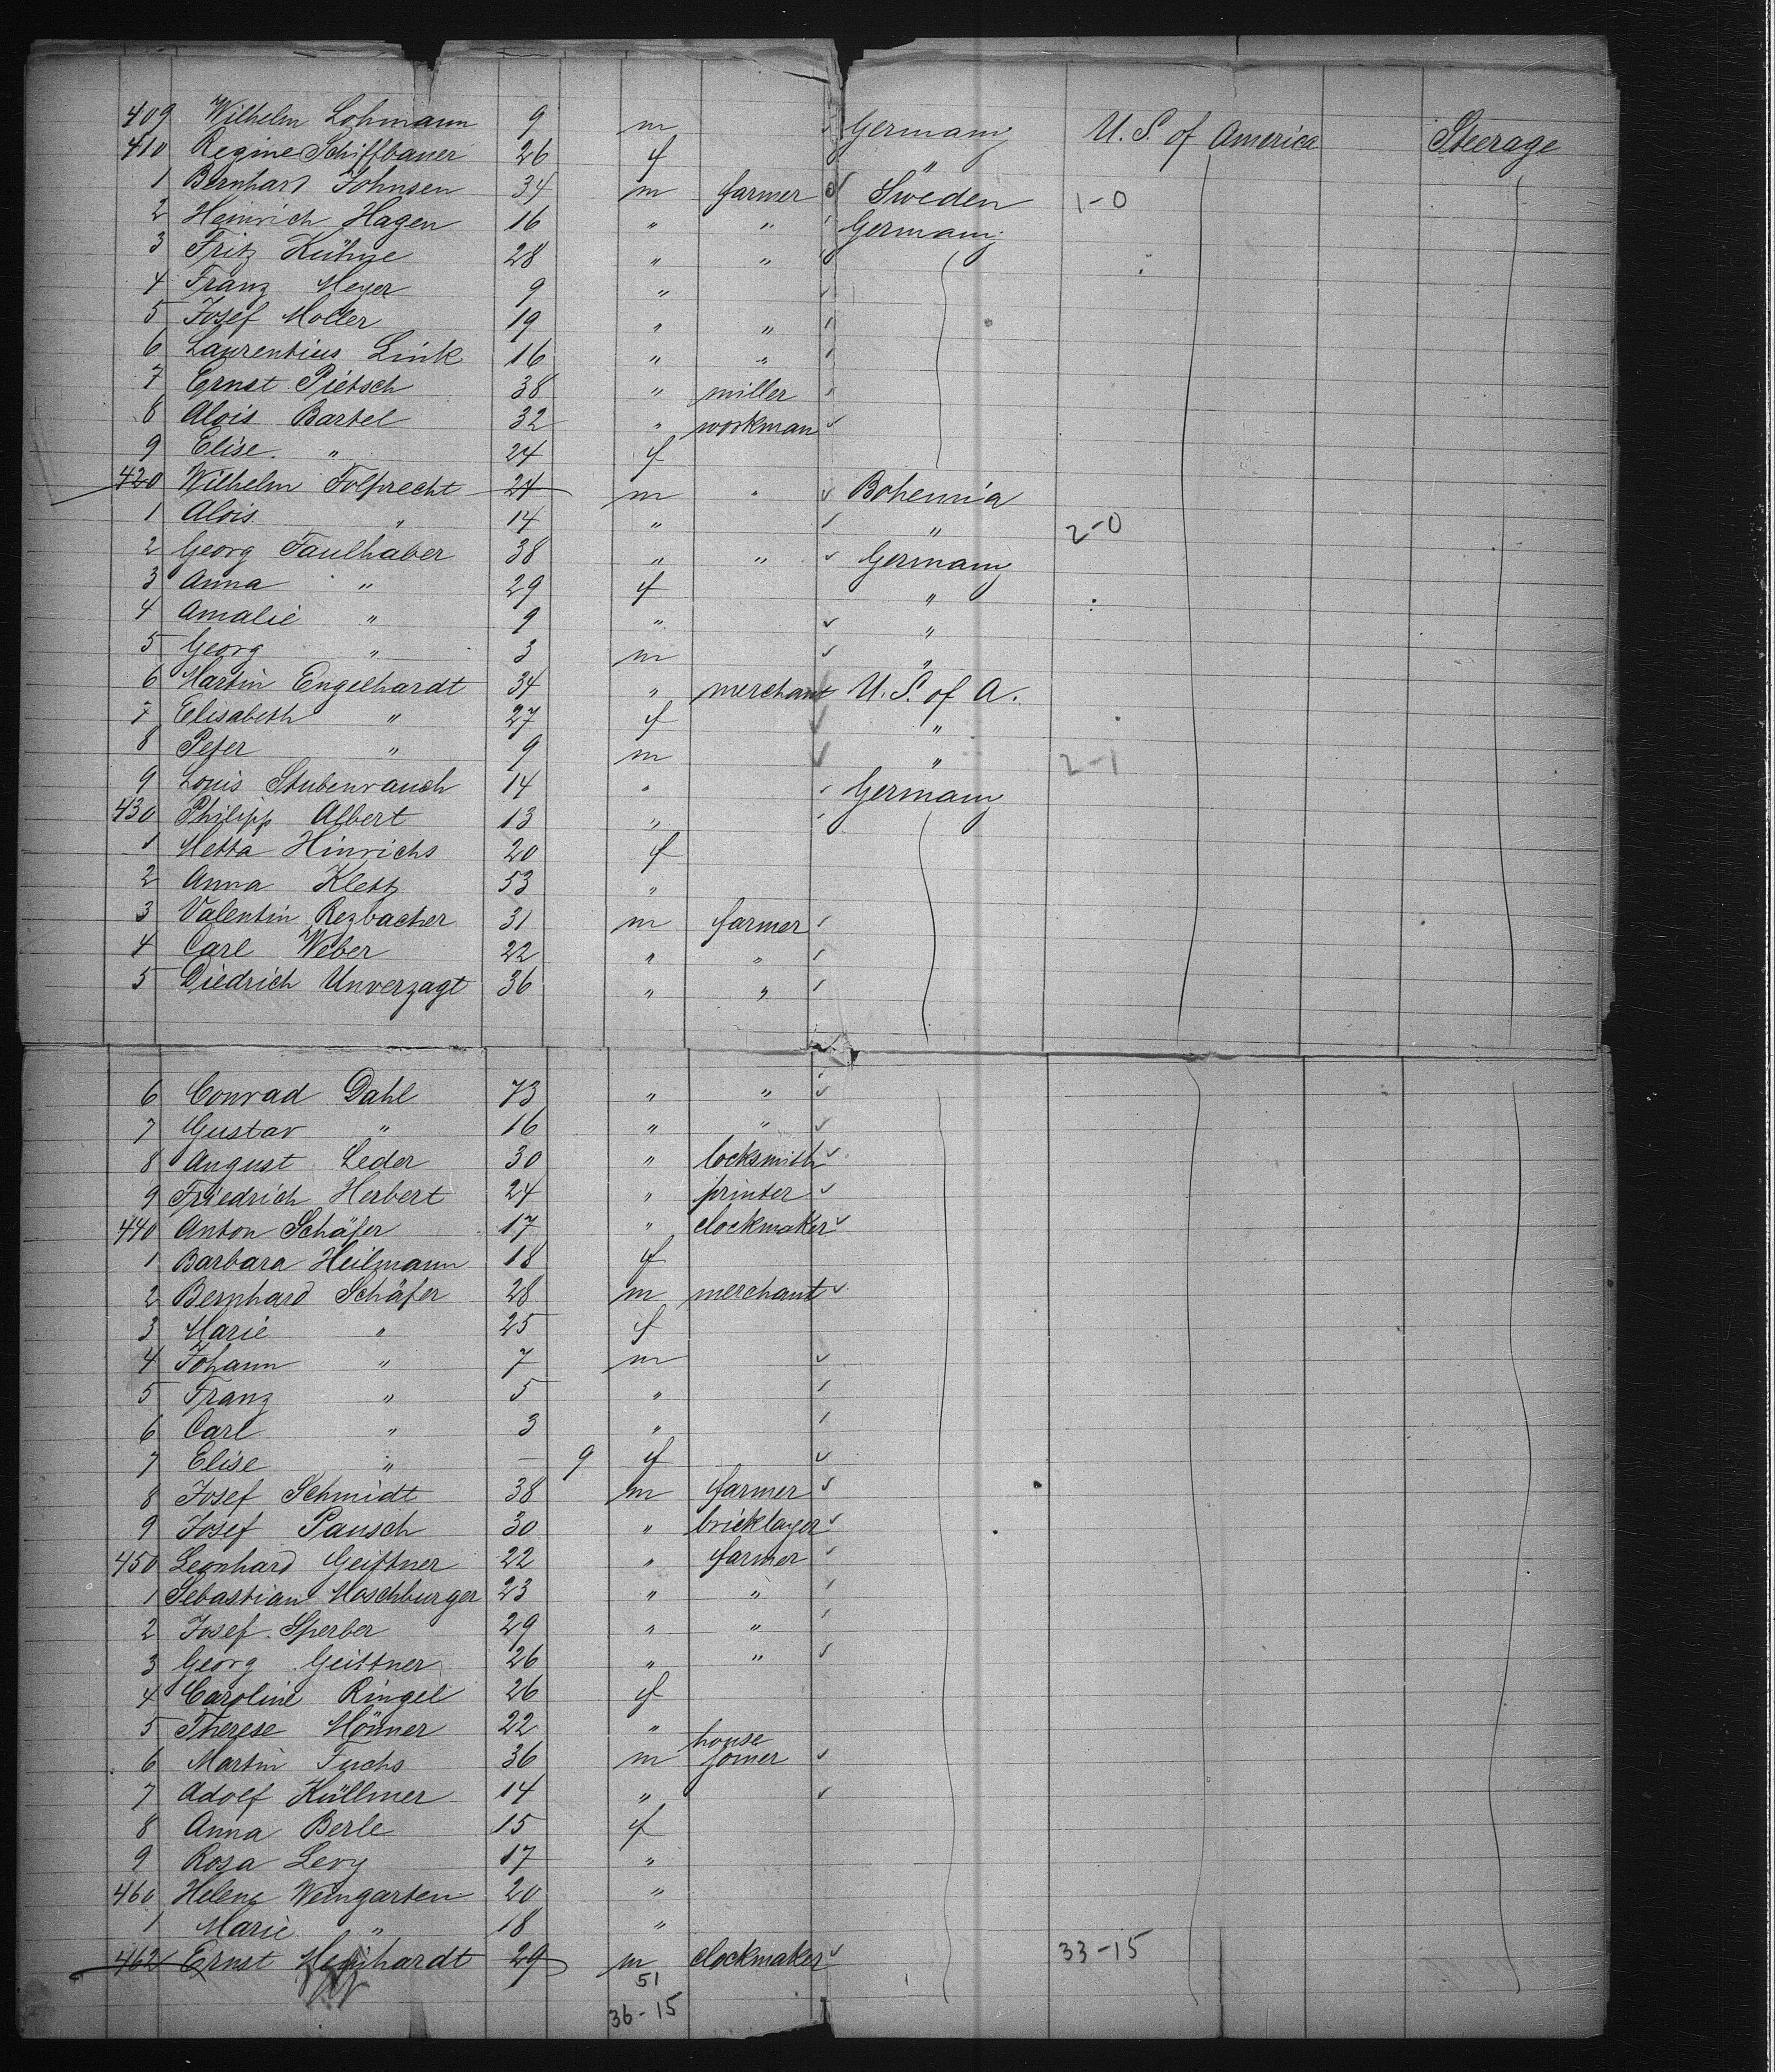 409 Wilhelm Lohmann 9 m Germany U. S. of America Steerage
410 Regine Schiffbauer 26 f "
1 Bernhard Johnsen 34 m farmer Sweden 1-0
2 Heinrich Hagen 16 " " Germany
3 Fritz Kühne 28 " "
4 Franz Meyer 9 "
5 Josef Moller 19 " "
6 Laurentius Link 16 " "
7 Ernst Pietsch 38 " miller
8 Alois Bartel 32 " workman
9 Elise " 24 f
420 Wilhelm Folprecht 24 m " Bohemia
1 Alois " 14 " " 2-0
2 Georg Faulhaber 38 " " Germany
3 Anna " 29 f "
4 Amalie " 9 " "
5 Georg " 3 m "
6 Martin Engelhardt 34 " merchant U. S. of A.
7 Elisabeth " 27 f "
8 Peter " 9 m " 2-1
9 Louis Stubenrauch 14 " Germany
430 Philipp Albert 13 "
1 Metta Hinrichs 20 f
2 Anna Kletz 53 "
3 Valentin Rezbacher 31 m farmer
4 Carl Weber 22 " "
5 Diedrich Unverzagt 36 " "
6 Conrad Dahl 73 " "
7 Gustav " 16 " "
8 August Leder 30 " locksmith
9 Friedrich Herbert 24 " printer
440 Anton Schäfer 17 " clockmaker
1 Barbara Heilmann 18 f
2 Bernhard Schäfer 28 m merchant
3 Marie " 25 f
4 Johann " 7 m
5 Franz " 5 "
6 Carl " 3 "
7 Elise " — 9 f
8 Josef Schmidt 38 m farmer
9 Josef Pausch 30 " bricklayer
450 Leonhard Geittner 22 " farmer
1 Sebastian Moschburger 23 " "
2 Josef Sperber 29 " "
3 Georg Geittner 26 " "
4 Caroline Ringel 26 f
5 Therese Mönner 22 "
6 Martin Fuchs 36 m house joiner
7 Adolf Küllmer 14 "
8 Anna Berle 15 f
9 Rosa Levy 17 "
460 Helene Weingarten 20 "
1 Marie " 18 "
462 Ernst 29 m clockmaker 33-15
51
36-15